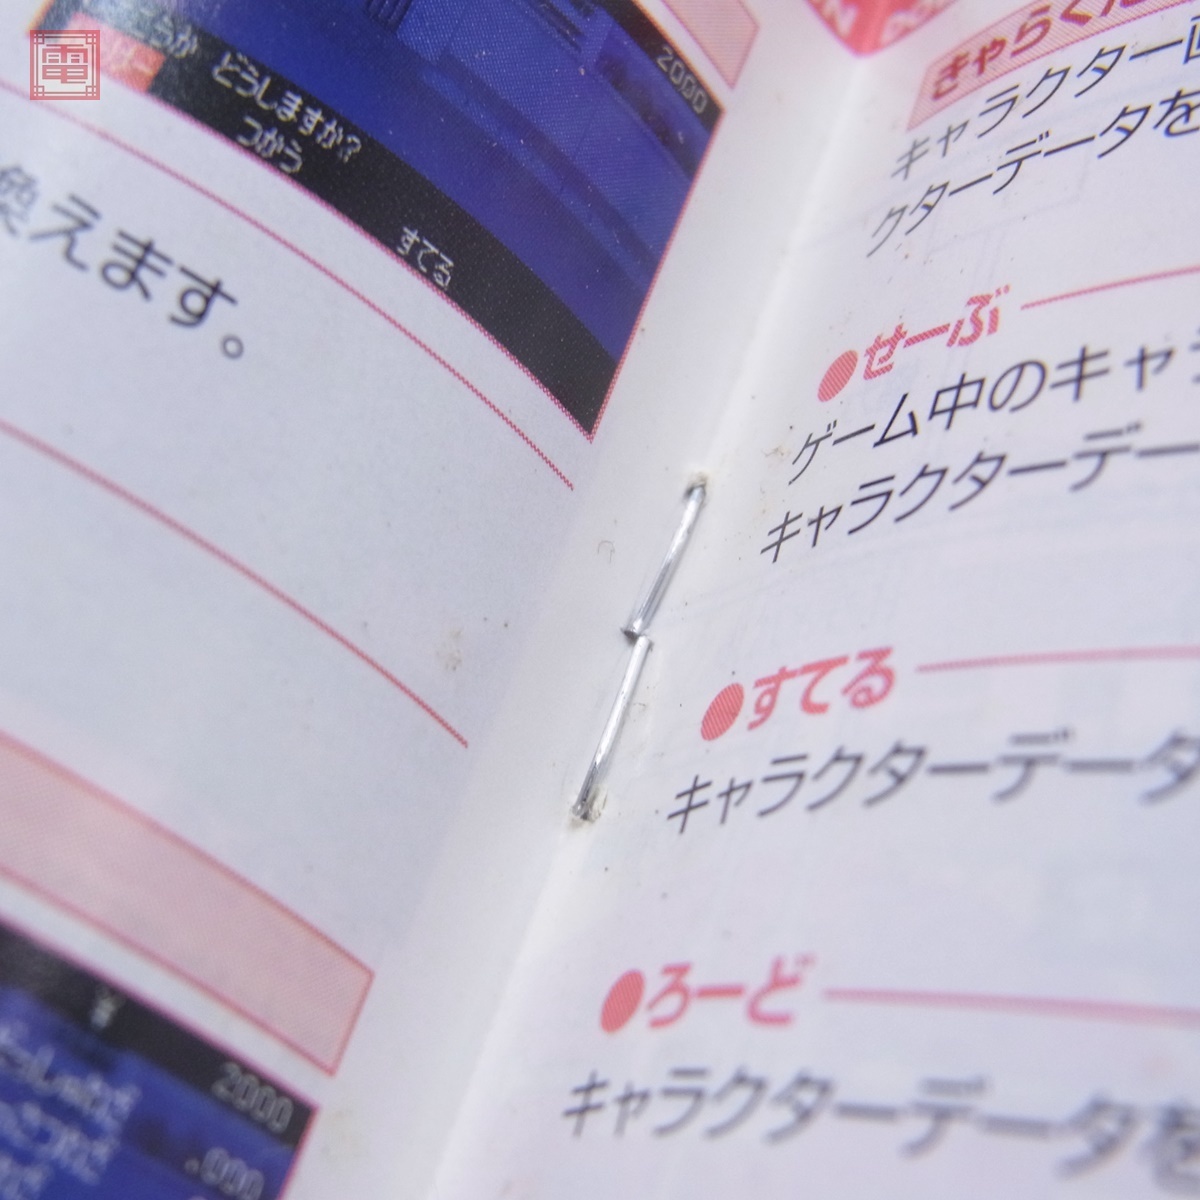 電
2000
どうしますか?
つかう
すてる
換えます。
2000
.000
きゃらくた
キャラクター
クターデータを
●せーぶ
ゲーム中のキャラ
キャラクターデー
●すてる
キャラクターデータ
●ろーど
キャラクターデータを